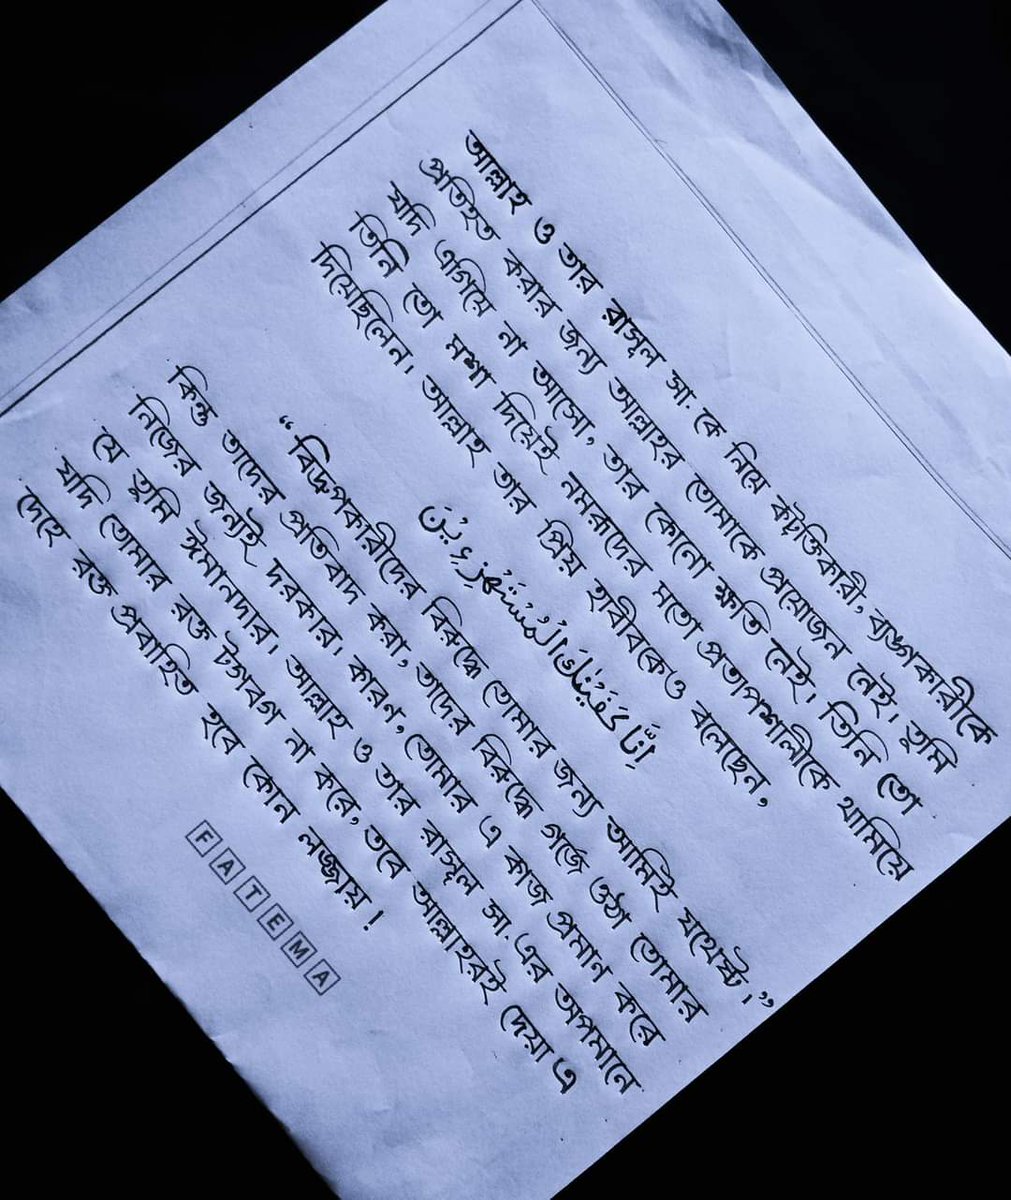 আল্লাহ ও তার রাসূল সা. কে নিয়ে কটুক্তিকারী, ব্যঙ্গকারীকে
প্রতিহত করার জন্য আল্লাহর তোমাকে প্রয়োজন নেই। তুমি
যদি এগিয়ে না আসো, তার কোনো ক্ষতি নেই। তিনি তো
তিনি তো মশা দিয়েই নমরূদের মতো প্রতাপশালীকে থামিয়ে
দিয়েছিলেন। আল্লাহ তার প্রিয় হাবীবকেও বলেছেন,
اِنَّا كَفَيْنٰكَ الْمُسْتَهْزِءِيْنَ
“বিদ্রূপকারীদের বিরুদ্ধে তোমার জন্য আমিই যথেষ্ট।”
কিন্তু তাদের প্রতিবাদ করা, তাদের বিরুদ্ধে গর্জে ওঠা তোমার
নিজের জন্যই দরকার। কারণ, তোমার এ কাজ প্রমান করে
যে তুমি ঈমানদার। আল্লাহ ও তার রাসূল সা. এর অপমানে
যদি তোমার রক্ত টগবগ না করে, তবে আল্লাহরই দেয়া এ
দেহে রক্ত প্রবাহিত হবে কোন লজ্জায়!
FATEMA